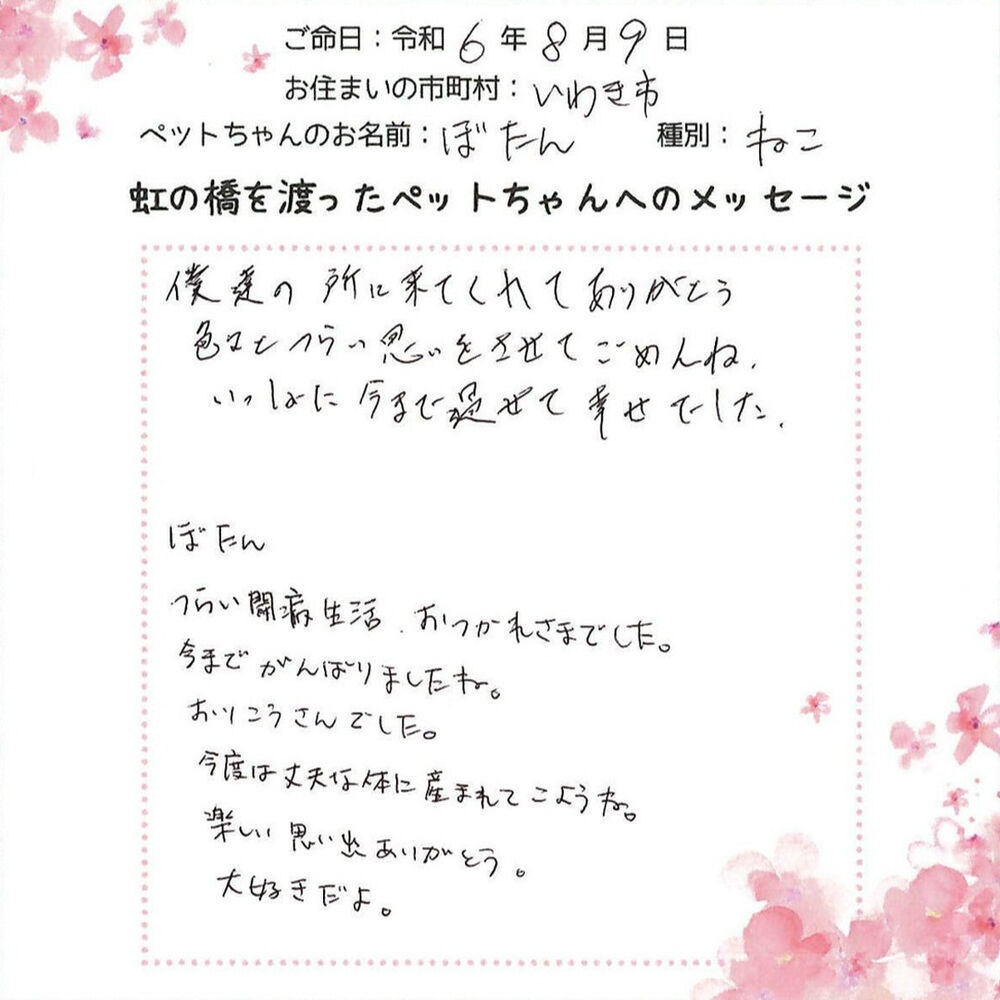 ご命日：令和 6 年 8 月 9 日
お住まいの市町村：いわき市
ペットちゃんのお名前：ぼたん　種別：ねこ
虹の橋を渡ったペットちゃんへのメッセージ
僕達の所に来てくれてありがとう
色々とつらい思いをさせてごめんね.
いっしょに今まで過せて幸せでした.
ぼたん
つらい闘病生活.おつかれさまでした。
今までがんばりましたね。
おりこうさんでした。
今度は丈夫な体に産まれてこようね。
楽しい思い出ありがとう。
大好きだよ。